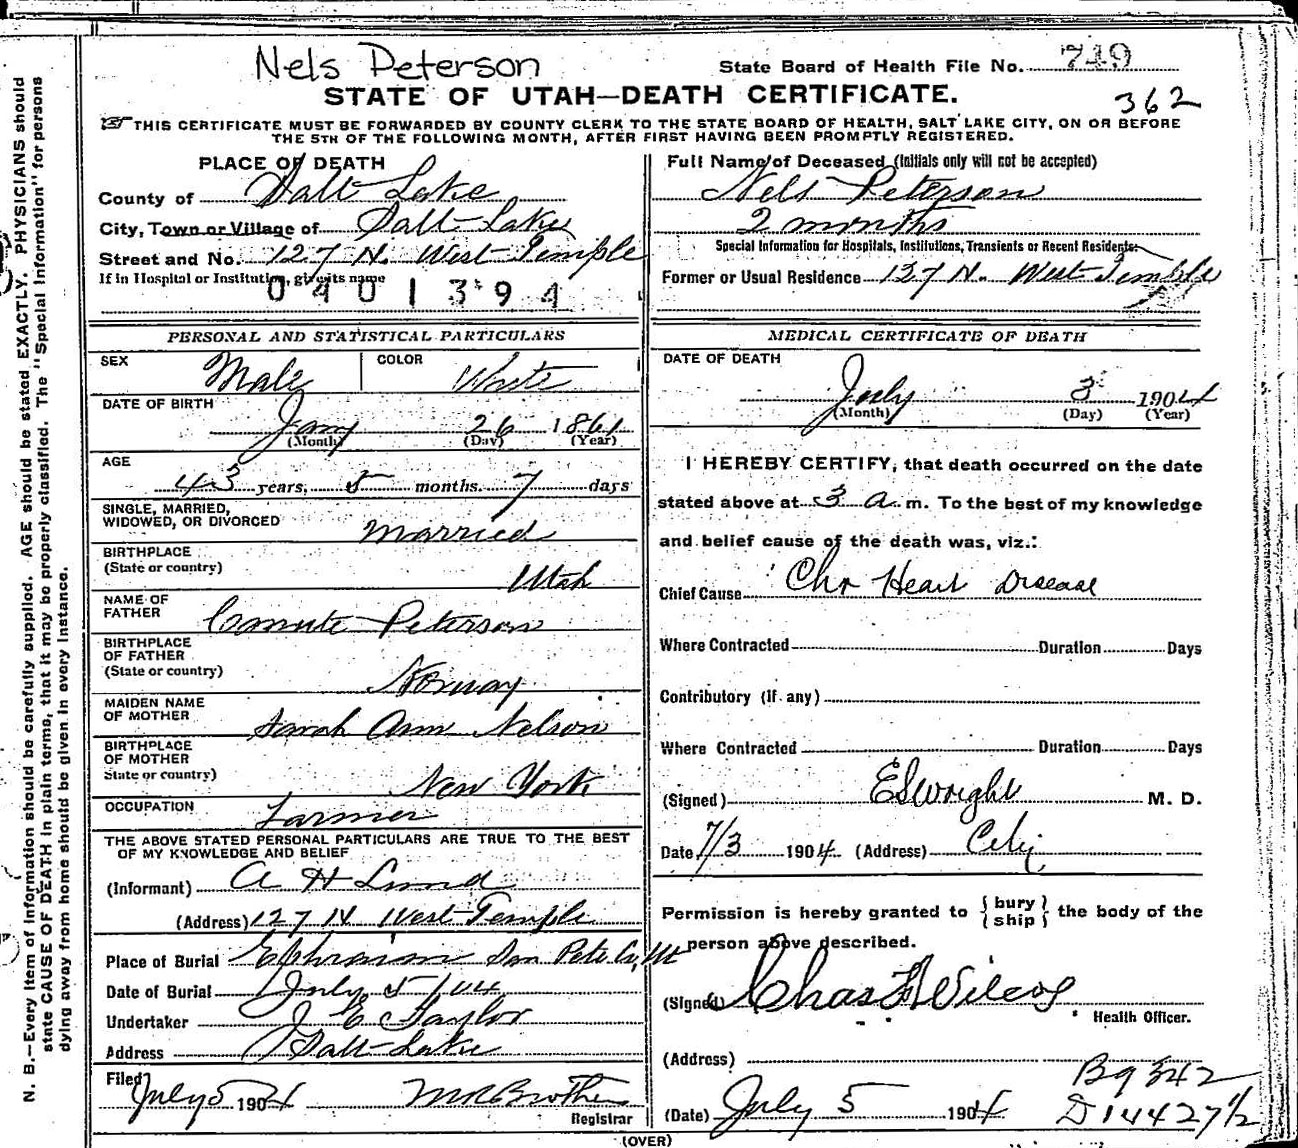 Nels Peterson
State Board of Health File No. 719
STATE OF UTAH—DEATH CERTIFICATE.
362
THIS CERTIFICATE MUST BE FORWARDED BY COUNTY CLERK TO THE STATE BOARD OF HEALTH, SALT LAKE CITY, ON OR BEFORE
THE 5TH OF THE FOLLOWING MONTH, AFTER FIRST HAVING BEEN PROMPTLY REGISTERED.
PLACE OF DEATH
County of Salt Lake
City, Town or Village of Salt Lake
Street and No. 127 N. West Temple
If in Hospital or Institution, give its name
0401394
PERSONAL AND STATISTICAL PARTICULARS
SEX Male COLOR White
DATE OF BIRTH
Jany 26 1861
(Month) (Day) (Year)
AGE
43 years, 5 months. 7 days
SINGLE, MARRIED,
WIDOWED, OR DIVORCED Married
BIRTHPLACE
(State or country) Utah
NAME OF
FATHER Canute Peterson
BIRTHPLACE
OF FATHER
(State or country) Norway
MAIDEN NAME
OF MOTHER Sarah Ann Nelson
BIRTHPLACE
OF MOTHER
State or country) New York
OCCUPATION Farmer
THE ABOVE STATED PERSONAL PARTICULARS ARE TRUE TO THE BEST
OF MY KNOWLEDGE AND BELIEF
(Informant) A H Lund
(Address) 127 N West Temple
Place of Burial Ephraim San Pete Co, Ut
Date of Burial July 5/04
Undertaker J C Taylor
Address Salt Lake
Filed
July 5 1904
Registrar
Full Name of Deceased (Initials only will not be accepted)
Nels Peterson
2 months
Special Information for Hospitals, Institutions, Transients or Recent Residents:
Former or Usual Residence 137 N. West Temple
MEDICAL CERTIFICATE OF DEATH
DATE OF DEATH
July 3 1904
(Month) (Day) (Year)
I HEREBY CERTIFY, that death occurred on the date
stated above at 3 a. m. To the best of my knowledge
and belief cause of the death was, viz.:
Chief Cause Chr Heart Disease
Where Contracted Duration Days
Contributory (If any)
Where Contracted Duration Days
(Signed) E S Wright M. D.
Date 7/3 1904 (Address) City
Permission is hereby granted to { bury / ship } the body of the
person above described.
(Signed) Chas F Wilcox
Health Officer.
(Address)
(Date) July 5 1904
B9342
D 14427 1/2
(OVER)
N. B.—Every item of information should be carefully supplied. AGE should be stated EXACTLY. PHYSICIANS should
state CAUSE OF DEATH in plain terms, that it may be properly classified. The "Special Information" for persons
dying away from home should be given in every instance.